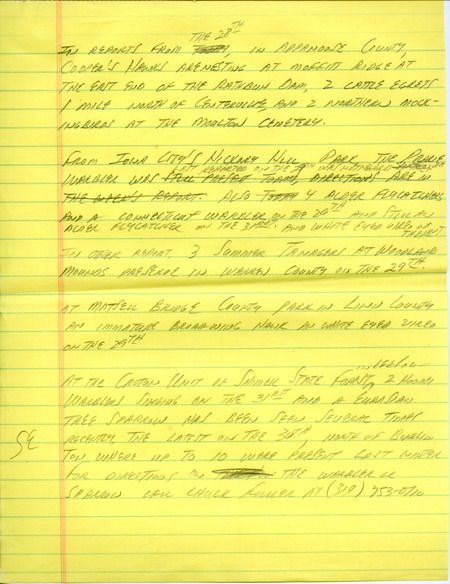 THE 28TH
IN REPORTS FROM, IN APPANOOSE COUNTY,
COOPER'S HAWKS ARE NESTING AT MOFFIT RIDGE AT
THE EAST END OF THE RATHBUN DAM, 2 CATTLE EGRETS
1 MILE NORTH OF CENTERVILLE, AND 2 NORTHERN MOCK-
INGBIRDS AT THE MOULTON CEMETERY.
FROM IOWA CITY'S HICKORY HILL PARK THE PRAIRIE
LAST REPORTED ON THE
WARBLER WAS STILL PRESENT TODAY, DIRECTIONS ARE IN
THE WEEK'S REPORT. ALSO TODAY 4 ALDER FLYCATCHERS
AND A CONNECTICUT WARBLER ON THE 29TH AND
ALDER FLYCATCHER ON THE 31ST. AND WHITE EYED VIREO
IN OTHER REPORT, 3 SUMMER TANAGERS AT WOODLAND
MOUNDS PRESERVE IN WARREN COUNTY ON THE 29TH.
AT MATSELL BRIDGE COUNTY PARK IN LINN COUNTY
AN IMMATURE BROAD-WING HAWK AN WHITE EYED VIREO
ON THE 29TH
AT THE CROTON UNIT OF SHIMEK STATE FOREST, 2 HOODED
WARBLERS SINGING ON THE 31ST AND A EURASIAN
TREE SPARROW HAS BEEN SEEN SEVERAL TIMES
RECENTLY, THE LATEST ON THE 30TH, NORTH OF BURLIN
TON WHERE UP TO 10 WERE PRESENT LAST WINTER
FOR DIRECTIONS THE WARBLER OR
SPARROW CALL CHUCK FULLER AT (319) 753-0110